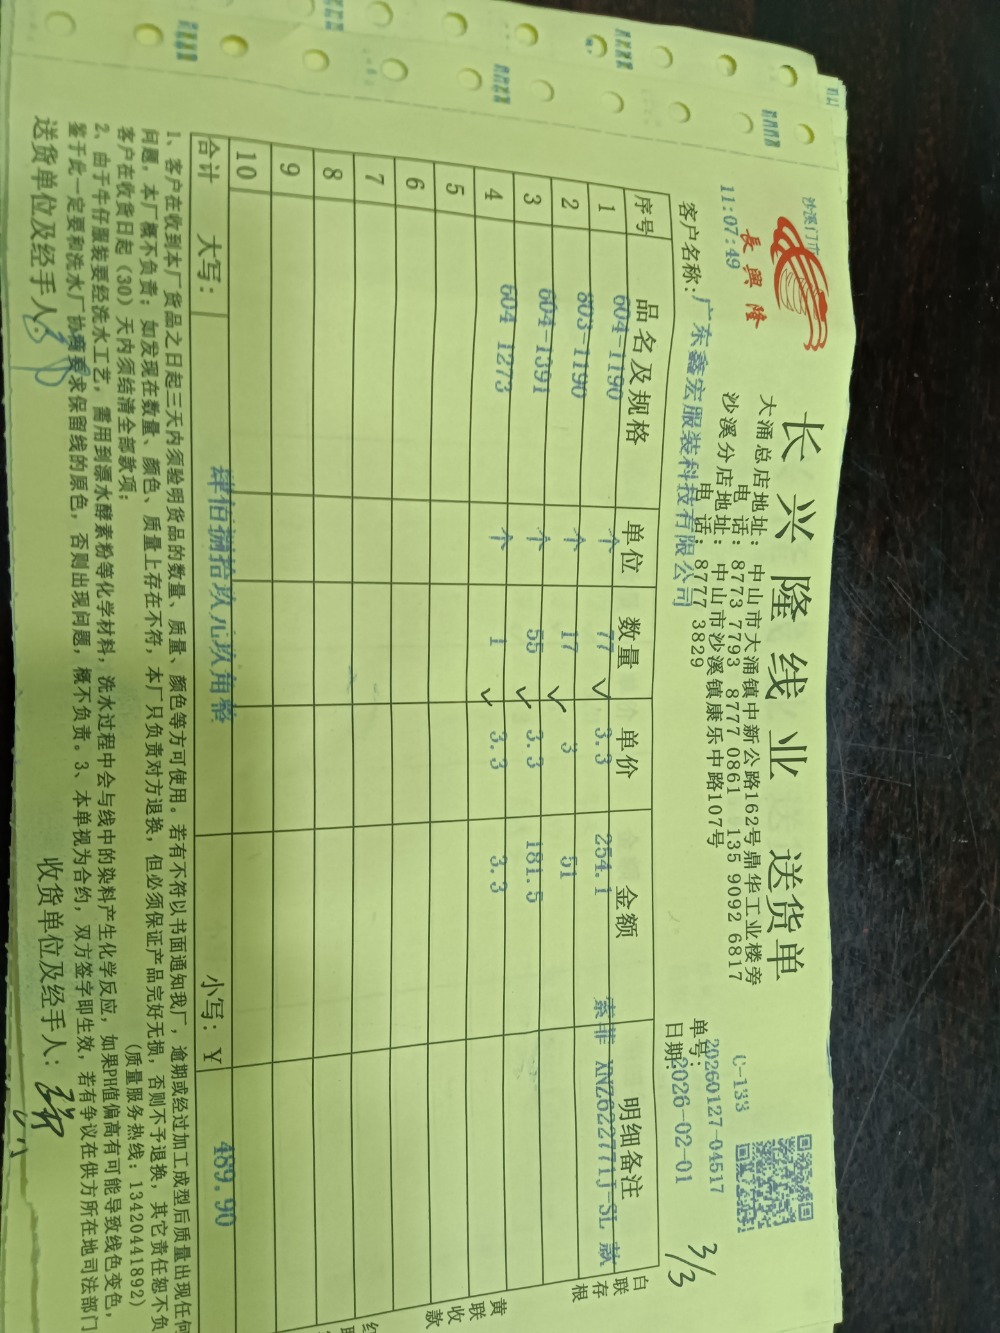 沙溪门市
長興隆
长兴隆线业 送货单
大涌总店地址: 中山市大涌镇中新公路162号鼎华工业楼旁
电 话: 8773 7793 8777 0861 135 9092 6817
沙溪分店地址: 中山市沙溪镇康乐中路107号
电 话: 8777 3829
C-133
11:07:49
单号: 20260127-04517
客户名称: 广东鑫宏服装科技有限公司
日期: 2026-02-01
3/3
序号 品名及规格 单位 数量 单价 金额 明细备注
1 604-1190 个 77 3.3 254.1 索菲 XNZ622771J-SL 款
2 803-1190 个 17 3 51
3 604-1391 个 55 3.3 181.5
4 604 1273 个 1 3.3 3.3
5
6
7
8
9
10
合计 大写: 肆佰捌拾玖元玖角整 小写: ¥ 489.90
白联存根
黄联收款
1、客户在收到本厂货品之日起三天内须验明货品的数量、质量、颜色等方可使用。若有不符以书面通知我厂,逾期或经过加工成型后质量出现任何
问题,本厂概不负责;如发现在数量、颜色、质量上存在不符,本厂只负责对方退换,但必须保证产品完好无损,否则不予退换,其它责任恕不负
客户在收货日起(30)天内须结清全部款项; (质量服务热线:13420441892)
2、由于牛仔服装要经洗水工艺,需用到漂水酵素粉等化学材料,洗水过程中会与线中的染料产生化学反应,如果PH值偏高有可能导致线色变色,
鉴于此一定要和洗水厂协商要求保留线的原色,否则出现问题,概不负责。3、本单视为合约,双方签字即生效,若有争议在供方所在地司法部门
送货单位及经手人: 收货单位及经手人: